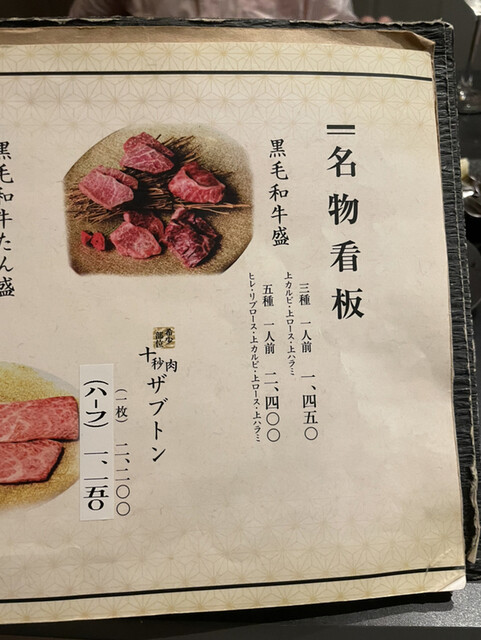 名物看板
黒毛和牛盛
三種 一人前 一、四五〇
上カルビ・上ロース・上ハラミ
五種 一人前 二、四〇〇
ヒレ・リブロース・上カルビ・上ロース・上ハラミ
希少部位
十秒肉ザブトン
(一枚) 二、二〇〇
(ハーフ) 一、一五〇
黒毛和牛たん盛